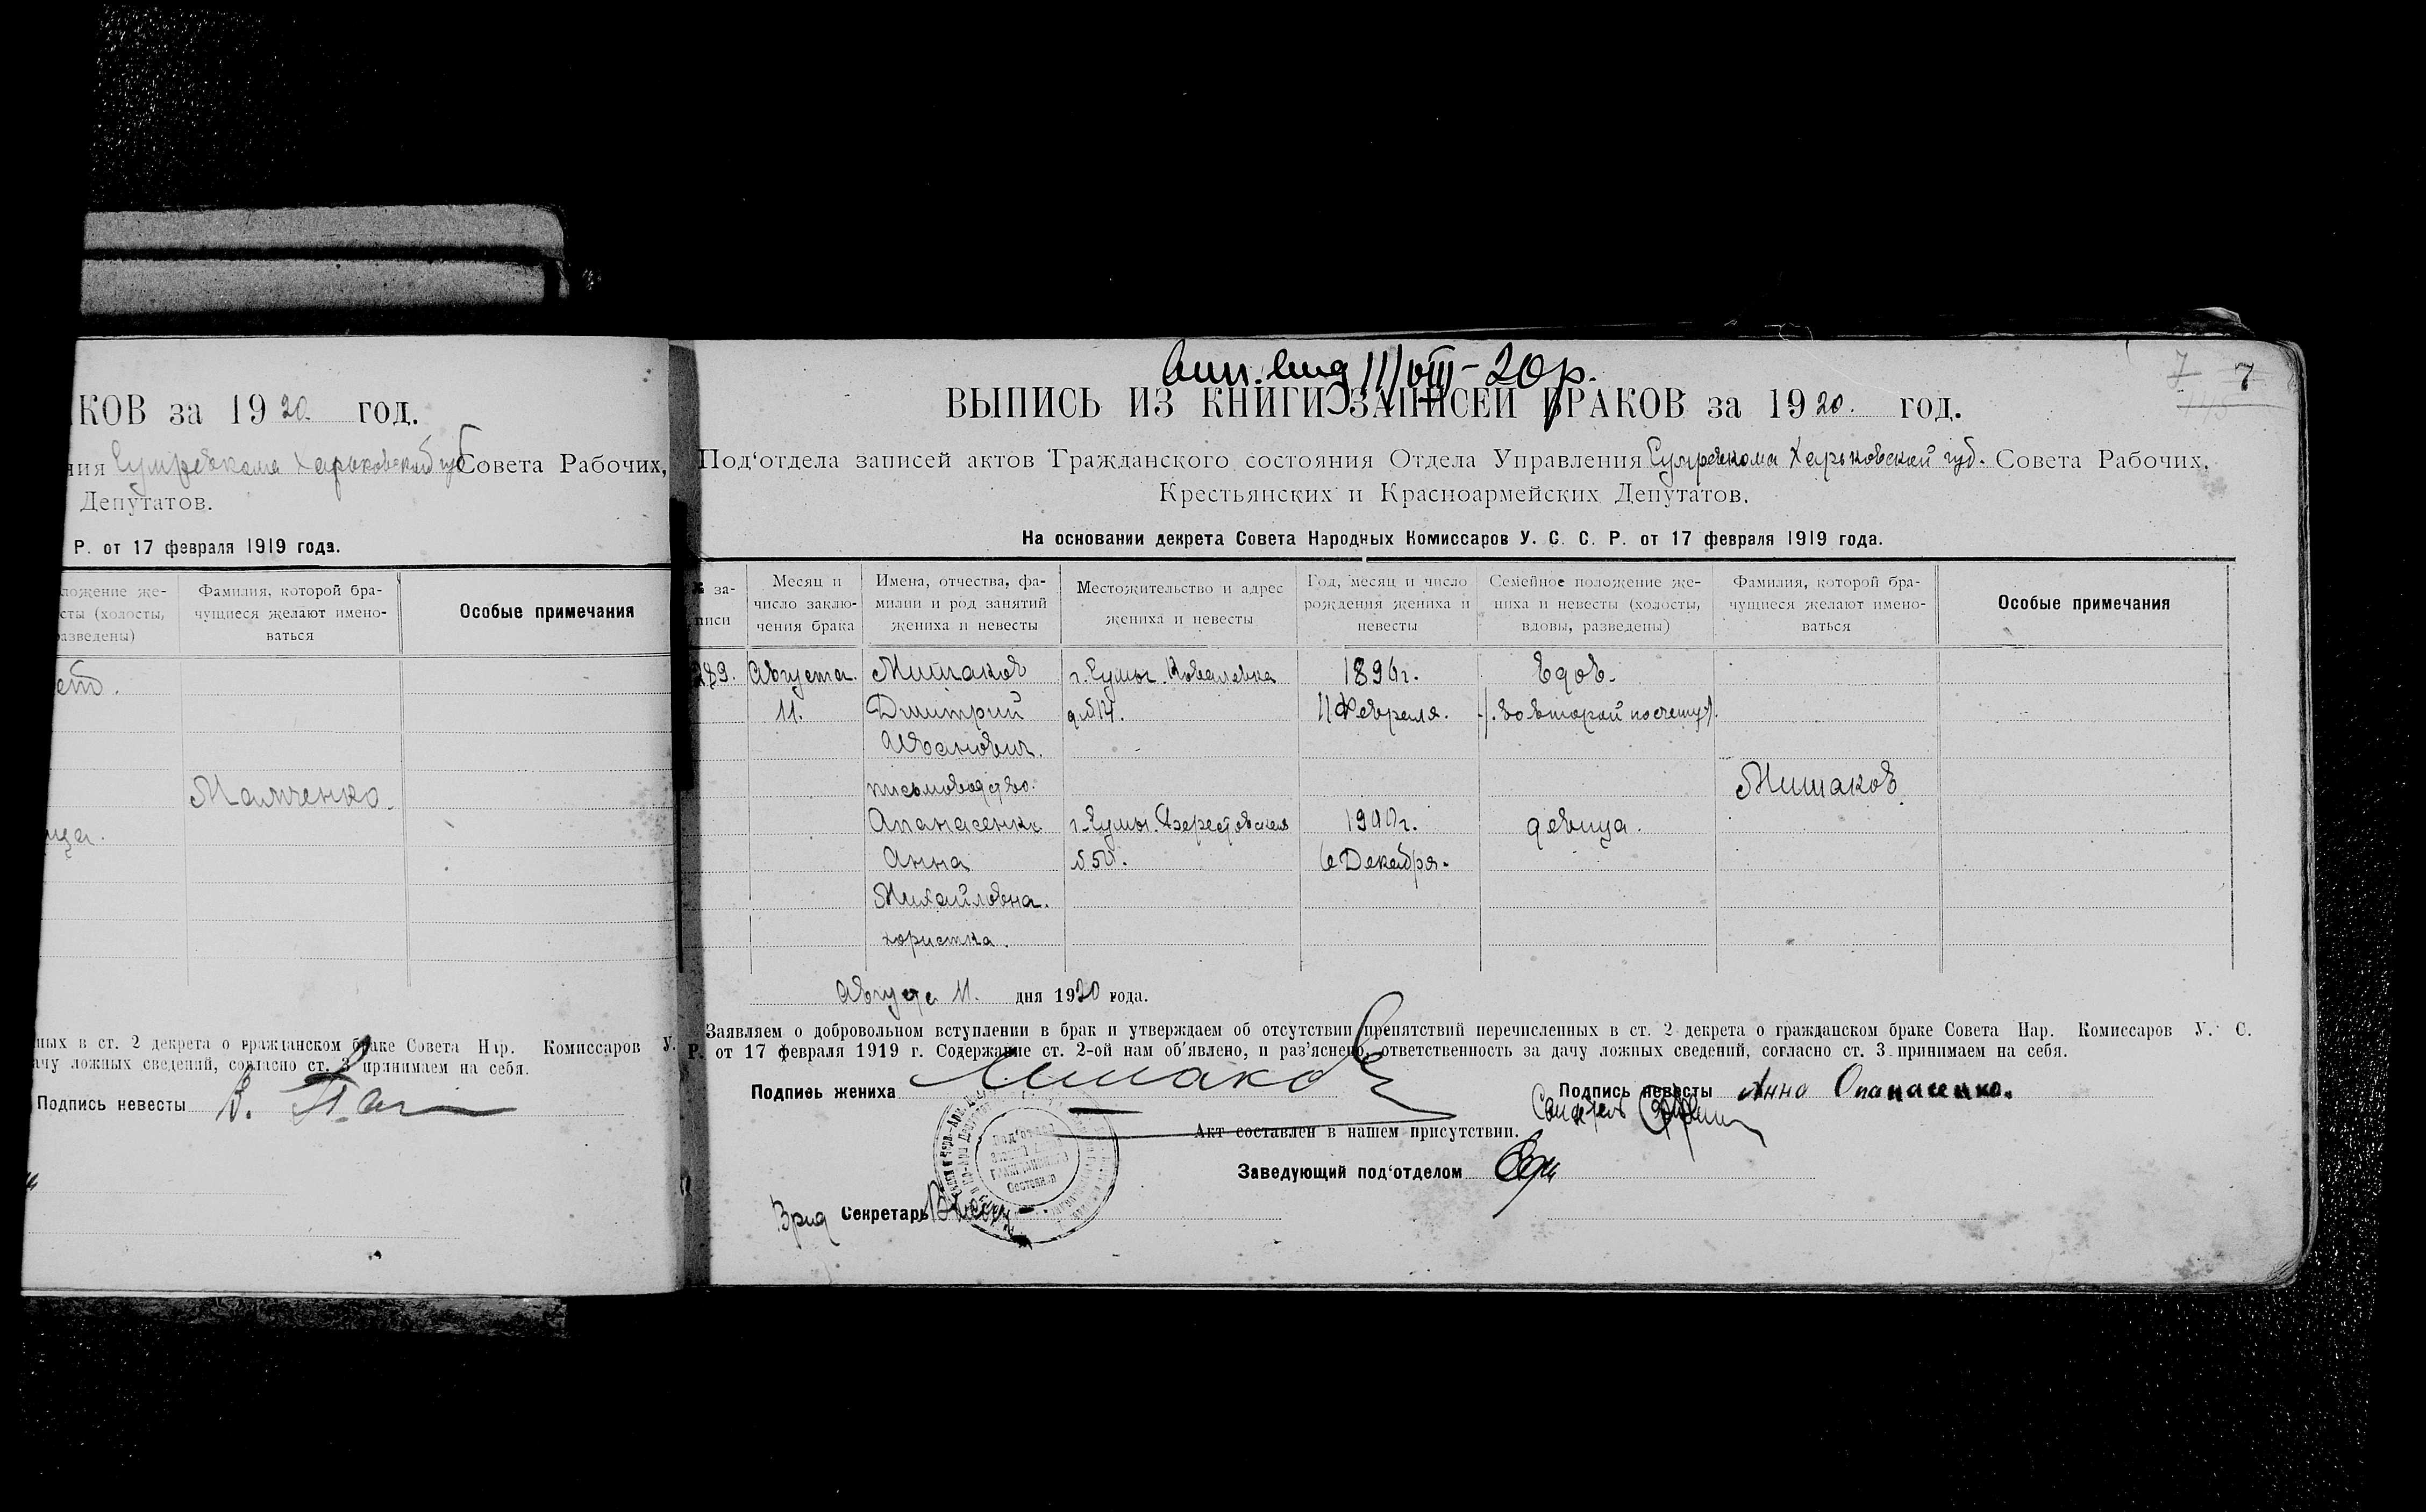 КОВ за 1920. год.
ния Сумревкома Харьковской губ Совета Рабочих,
Депутатов.
Р. от 17 февраля 1919 года.
ложение же-
сты (холосты,
разведены)
Фамилия, которой бра-
чущиеся желают имено-
ваться
Особые примечания
Мамченко.
ица.
ных в ст. 2 декрета о гражданском браке Совета Нар. Комиссаров У.
ачу ложных сведений, согласно ст. 3 принимаем на себя.
Подпись невесты В.
11/VIII-20р.
7 7
ВЫПИСЬ ИЗ КНИГИ ЗАПИСЕЙ БРАКОВ за 1920. год.
Под‘отдела записей актов Гражданского состояния Отдела Управления Сумревкома Харьковской губ. Совета Рабочих,
Крестьянских и Красноармейских Депутатов.
На основании декрета Совета Народных Комиссаров У. С. С. Р. от 17 февраля 1919 года.
№ за-
писи
Месяц и
число заклю-
чения брака
Имена, отчества, фа-
милии и род занятий
жениха и невесты
Местожительство и адрес
жениха и невесты
Год, месяц и число
рождения жениха и
невесты
Семейное положение же-
ниха и невесты (холосты,
вдовы, разведены)
Фамилия, которой бра-
чущиеся желают имено-
ваться
Особые примечания
289. Августа. Мишаков г. Сумы. Ковалевка 1896г. вдов.
11. Дмитрий д. №17. 11 Февраля. /. во второй по счету./.
Иванович.
письмоводство. Мишаков.
Апанасенко г. Сумы. 1900г. девица.
Анна №50. 6 Декабря.
Михайловна.
хористка.
Августа 11. дня 1920 года.
Заявляем о добровольном вступлении в брак и утверждаем об отсутствии препятствий перечисленных в ст. 2 декрета о гражданском браке Совета Нар. Комиссаров У. С.
Р. от 17 февраля 1919 г. Содержание ст. 2-ой нам об'явлено, и раз'яснено, ответственность за дачу ложных сведений, согласно ст. 3 принимаем на себя.
Подпись жениха Мишаков
Подпись невесты Анна Опанасенко.
Акт составлен в нашем присутствии.
Заведующий под‘отделом
Врид Секретарь